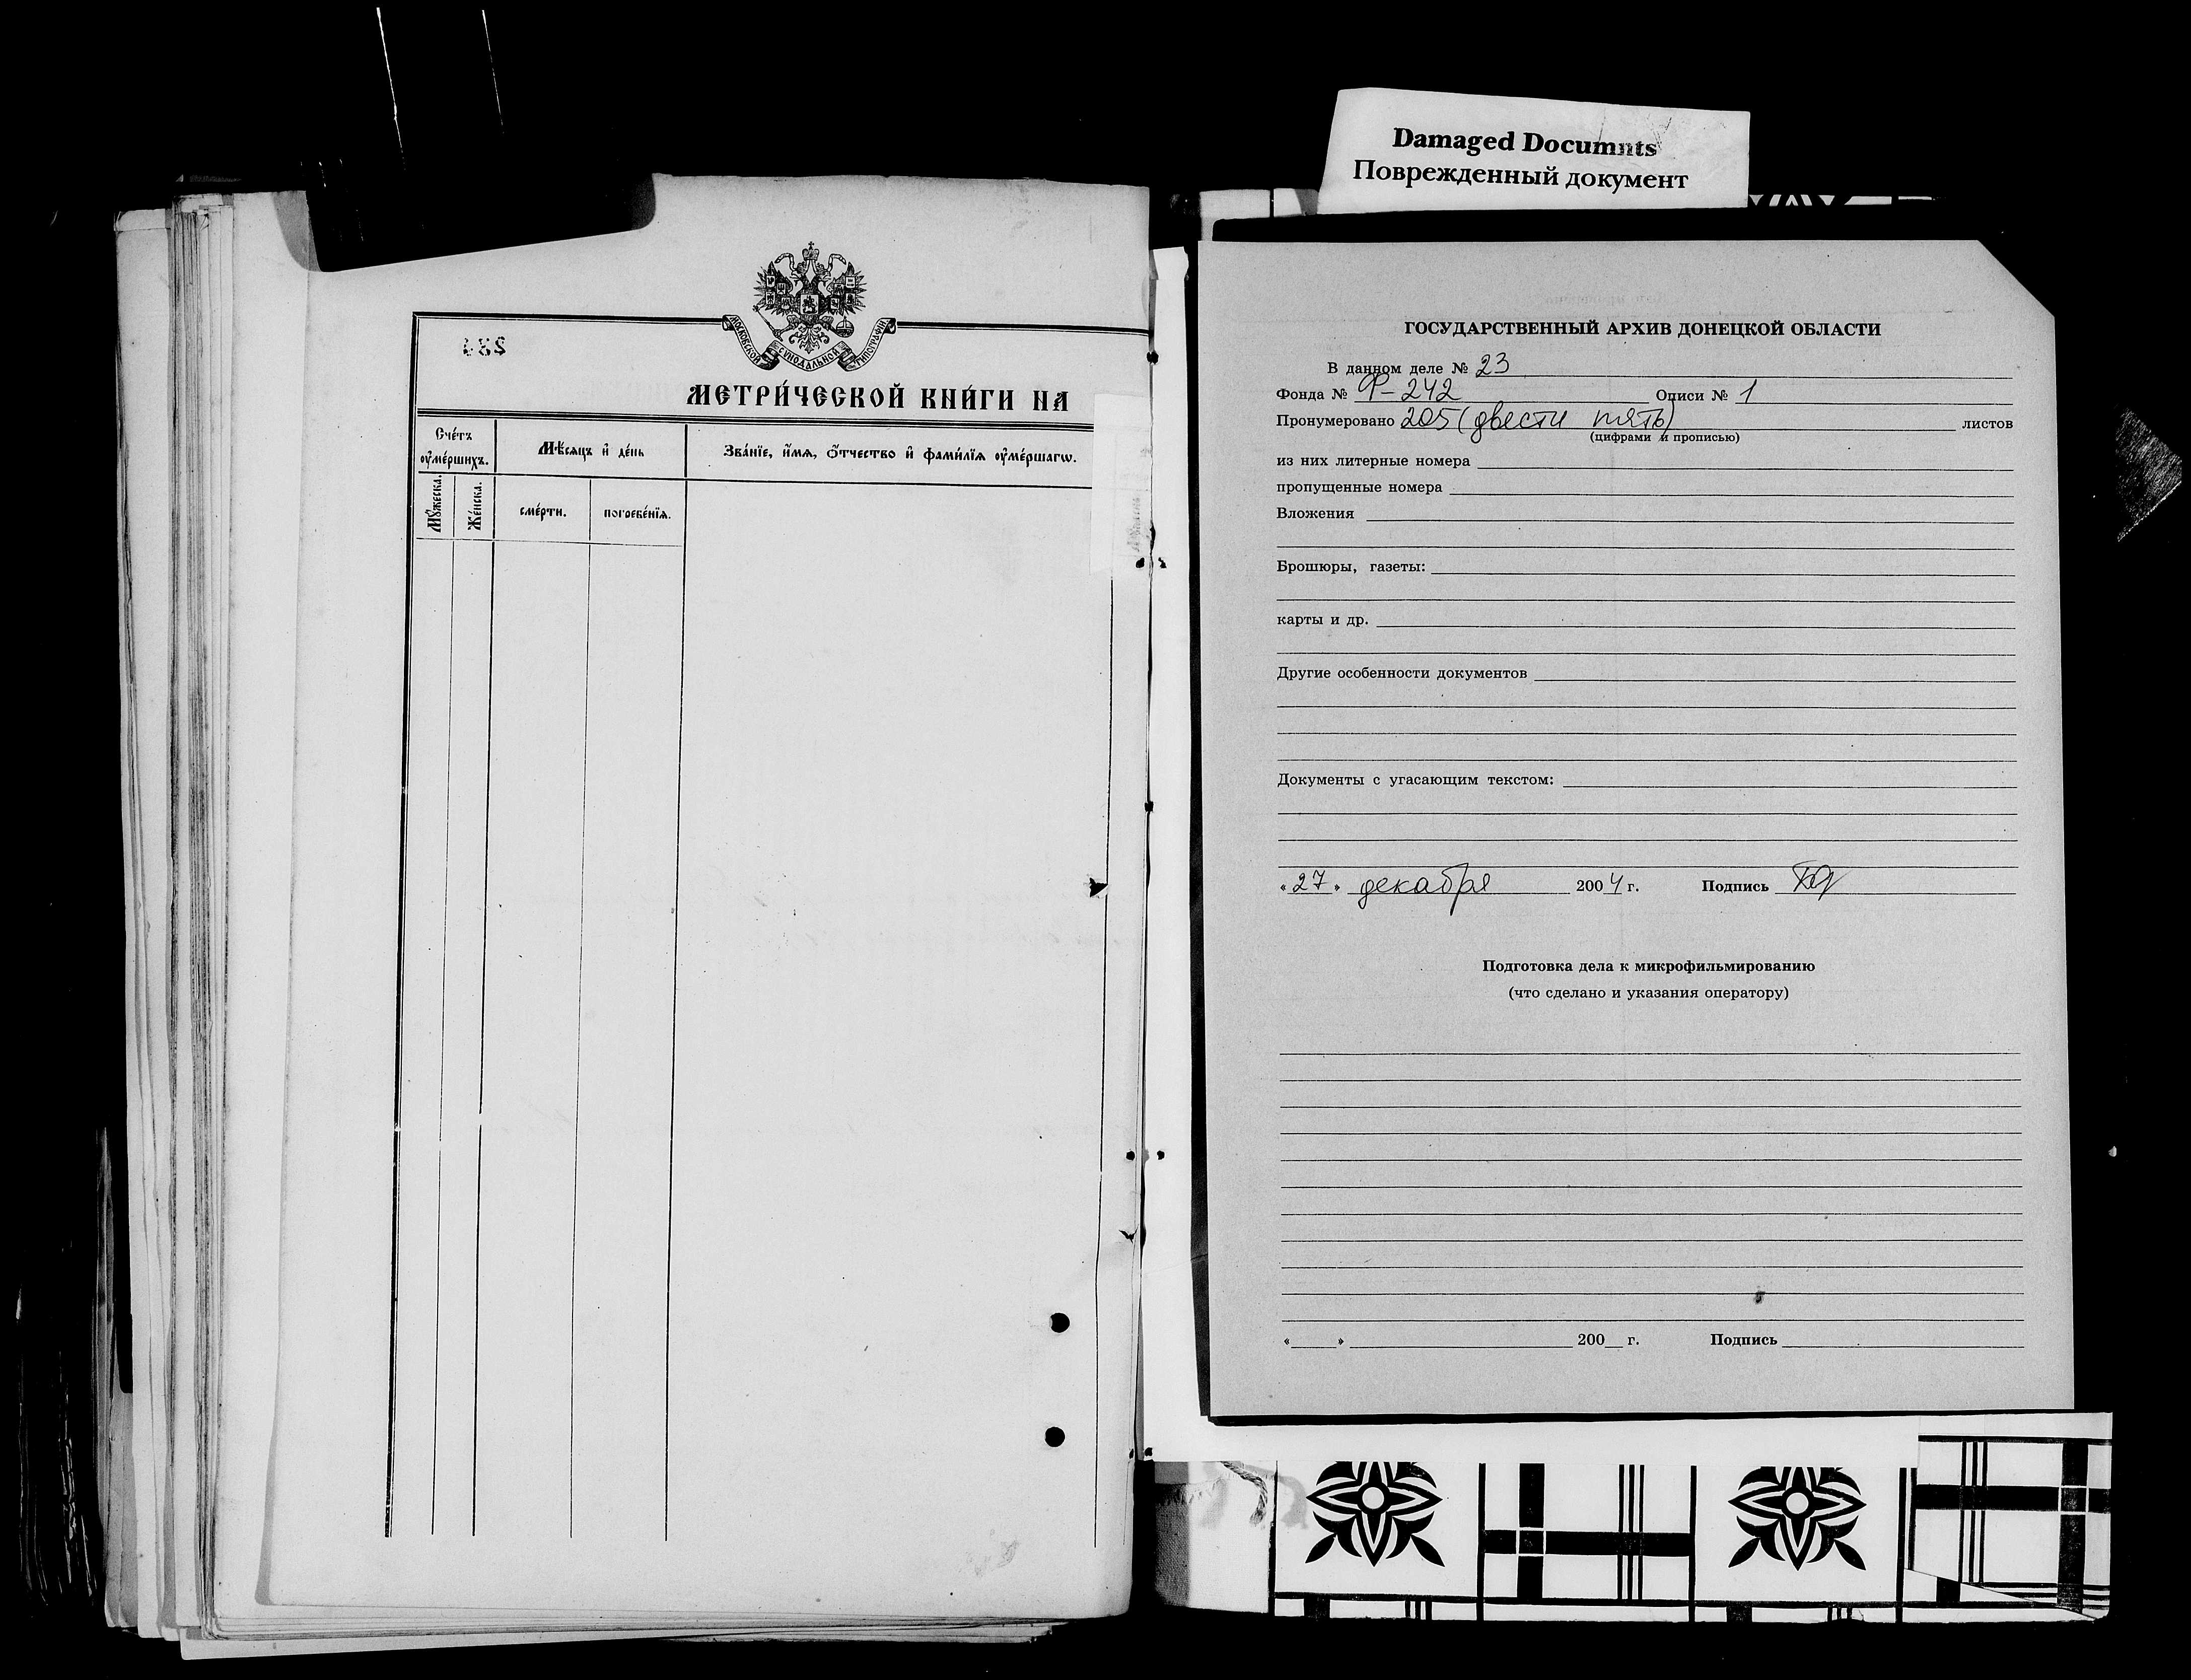 Damaged Documnts
Поврежденный документ
МОСКОВСКОЙ СѴНОДАЛЬНОЙ ТИПОГРАФІИ
МЕТРИ́ЧЕСКОЙ КНИ́ГИ НА
Сче́тъ ᲂу҆ме́ршихъ.
Мꙋ́жеска.
Же́нска.
Мѣ́сяцъ и҆ де́нь
сме́рти.
погребе́нїѧ.
Зва́нїе, и҆́мѧ, ѻ҆́тчество и҆ фами́лїѧ ᲂу҆ме́ршагѡ.
ГОСУДАРСТВЕННЫЙ АРХИВ ДОНЕЦКОЙ ОБЛАСТИ
В данном деле № 23
Фонда № Ф-242 Описи № 1
Пронумеровано 205 (двести пять) листов
(цифрами и прописью)
из них литерные номера
пропущенные номера
Вложения
Брошюры, газеты:
карты и др.
Другие особенности документов
Документы с угасающим текстом:
« 27 » декабря 2004 г. Подпись
Подготовка дела к микрофильмированию
(что сделано и указания оператору)
« » 200 г. Подпись